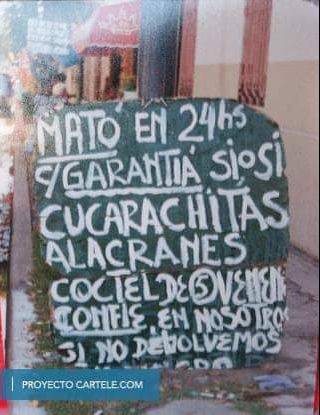 MATO EN 24hs
c/GARANTIA SIOSI
CUCARACHITAS
ALACRANES
COCTEL DE 5 VENEN
CONFIE EN NOSOTRO
SI NO DEVOLVEMOS
PROYECTO CARTELE.COM